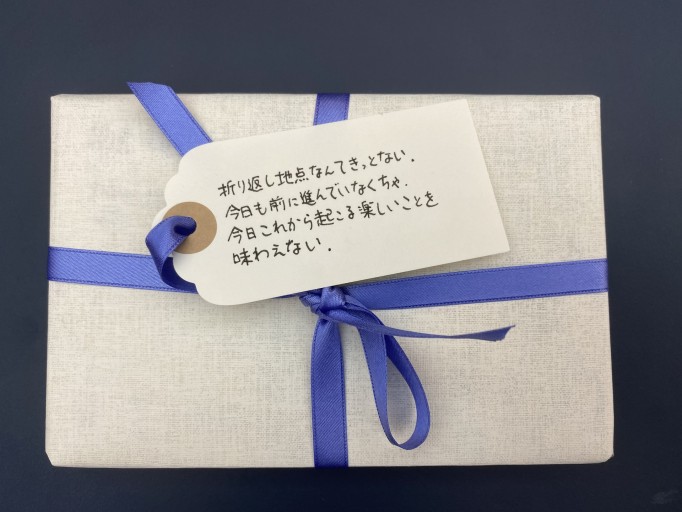 折り返し地点なんてきっとない.
今日も前に進んでいなくちゃ.
今日これから起こる楽しいことを
味わえない.